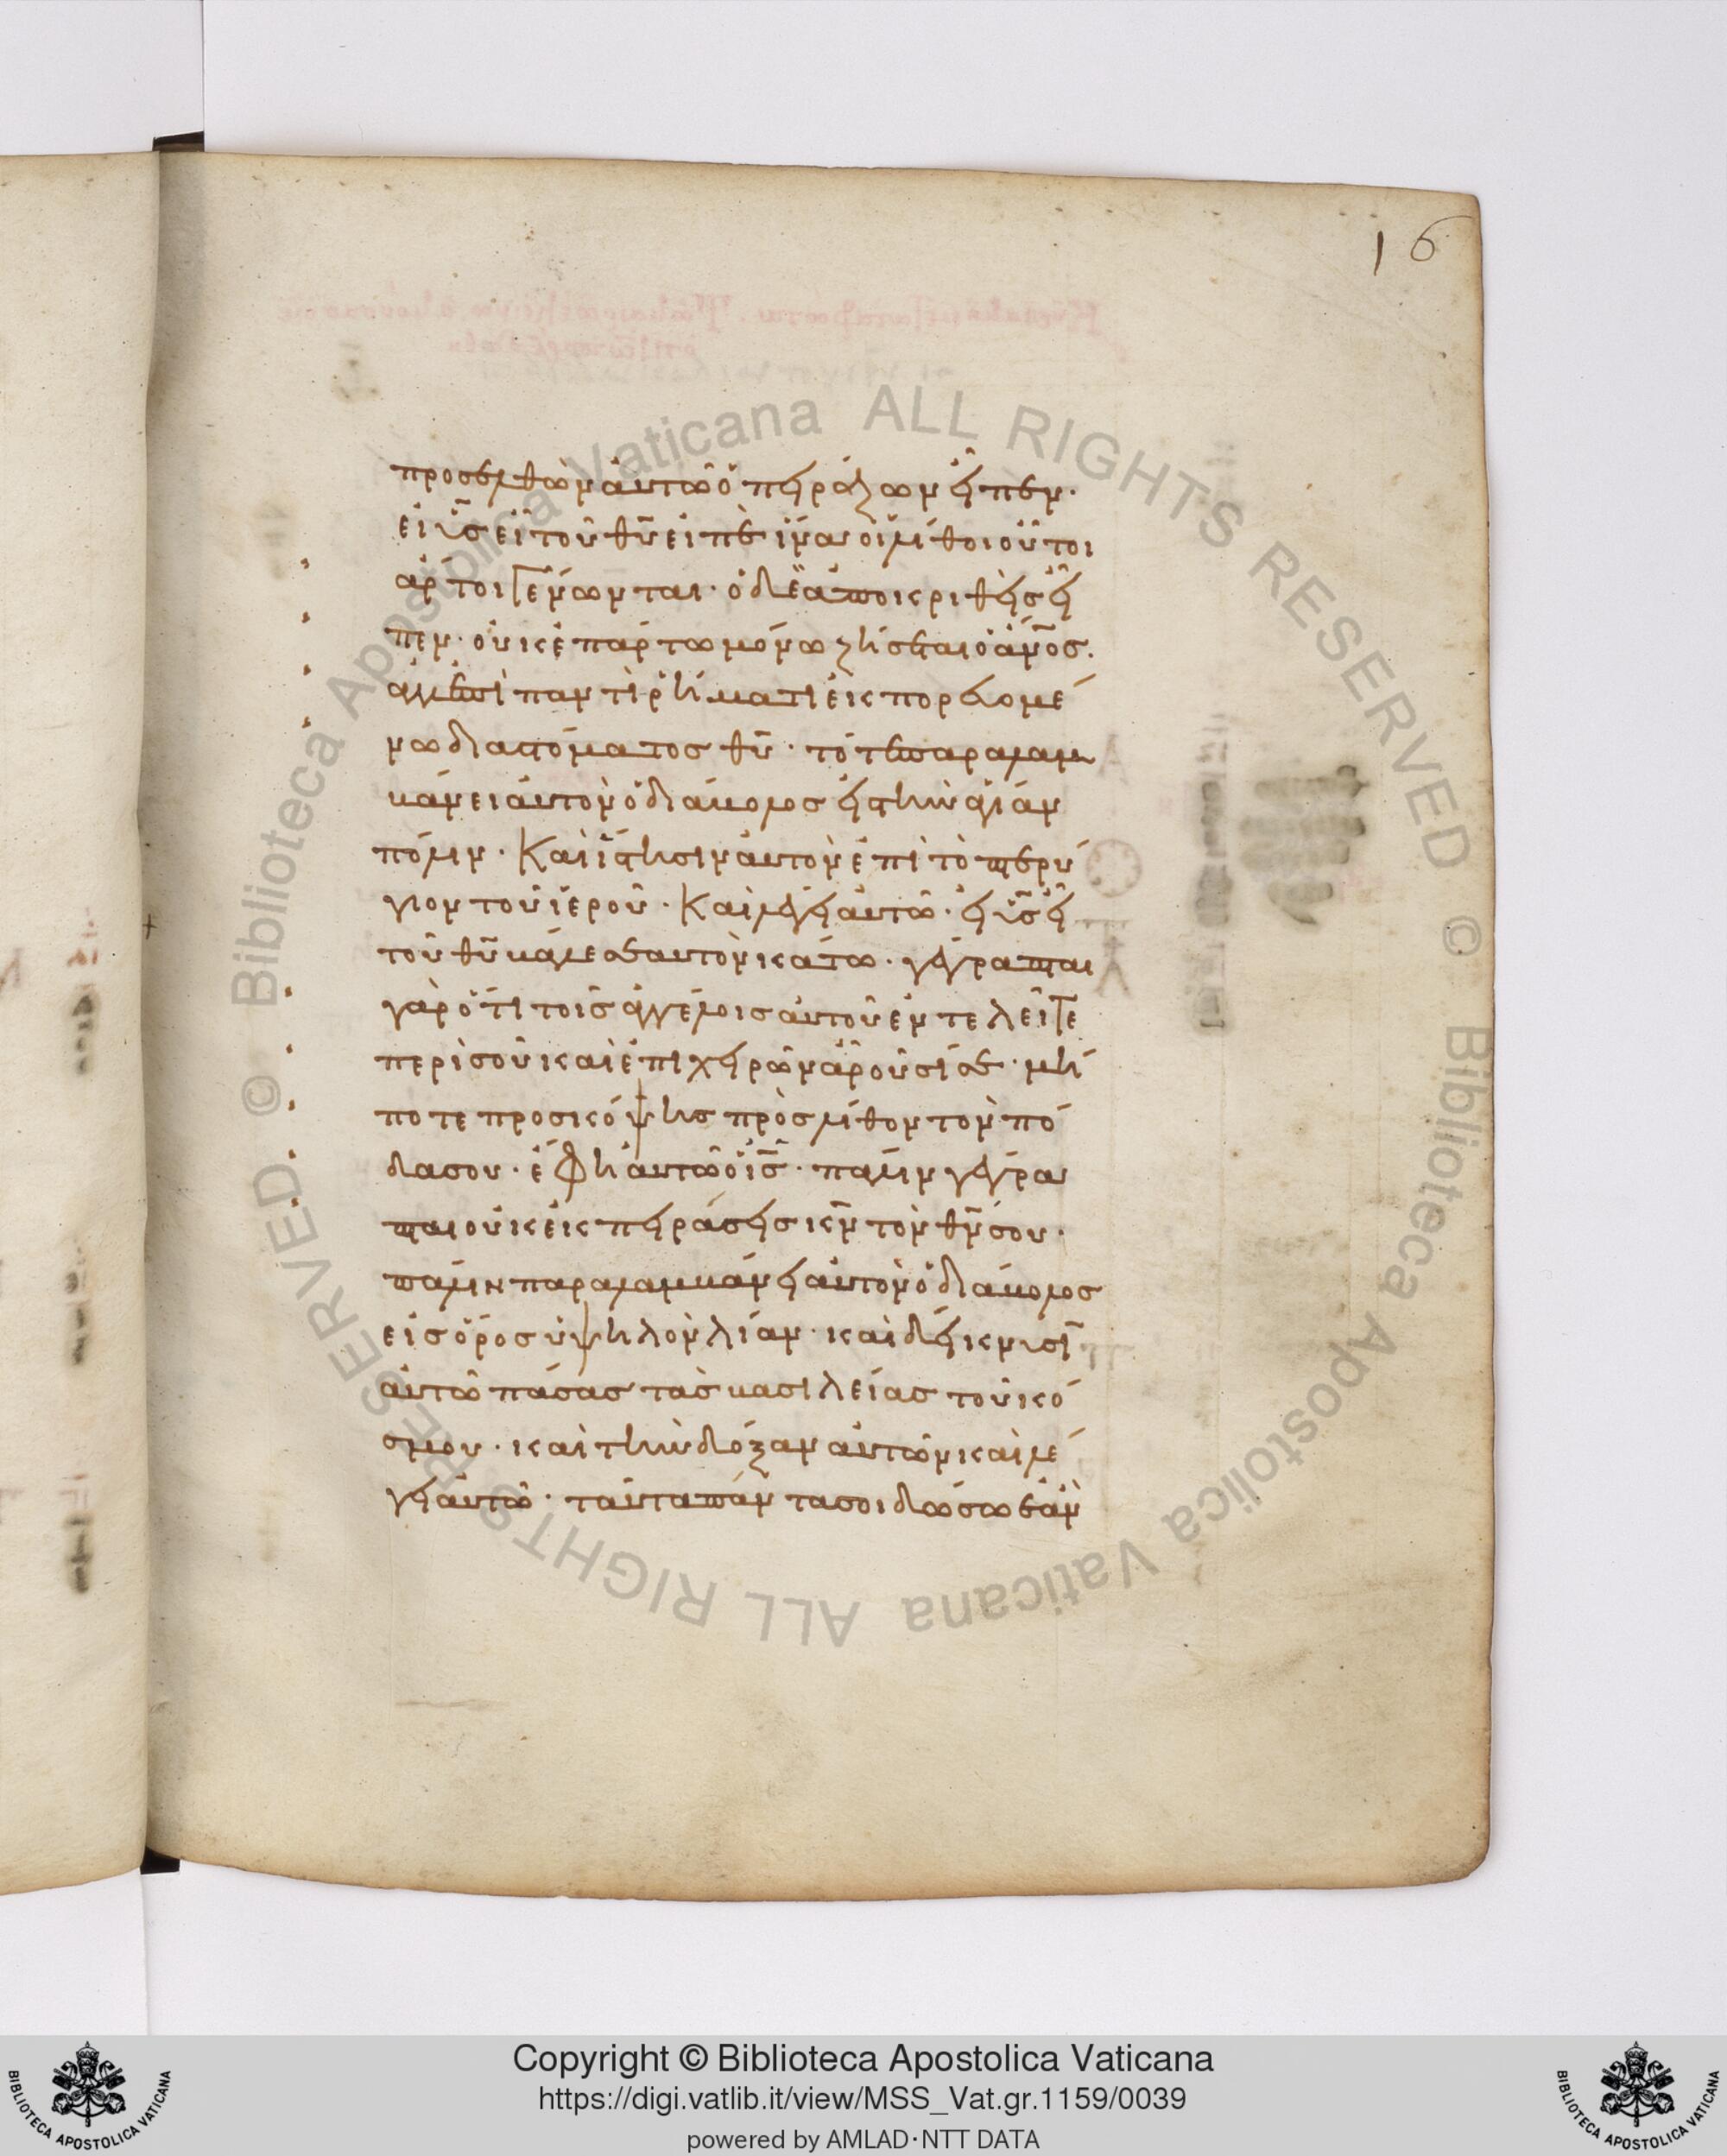 16
προσελθὼν αὐτῶ ὁ πειράζων εἶπεν·
εἰ υς̅ εἶ τοῦ θυ̅ εἰπὲ ἵνα οἱ λίθοι οὗτοι
ἄρτοι γένωνται· ὁ δὲ ἀποκριθεὶς εἶ
πεν· οὐκ ἐπ' ἄρτω μόνω ζήσεται ὁ ἄνο̅ς.
ἀλλ' ἐπὶ παντὶ ῥήματι ἐκπορευομέ
νω δια στόματος θυ̅· τότε παραλαμ
βάνει αὐτὸν ὁ διάβολος εἰς τὴν ἁγίαν
πόλιν· Καὶ ἵστησιν αὐτὸν ἐπὶ τὸ πτερύ
γιον τοῦ ἱεροῦ· Καὶ λέγει αὐτῶ· εἰ υς̅ εἶ
τοῦ θυ̅ βάλε σεαυτὸν κάτω· γέγραπται
γὰρ ὅτι τοῖς ἀγγέλοις αὐτοῦ ἐντελεῖται
περὶ σοῦ καὶ ἐπὶ χειρῶν ἀροῦσί σε· μή
ποτε προσκόψης πρὸς λίθον τὸν πό
δα σου· ἔφη αὐτῶ ὁ ις̅· πάλιν γέγρα
πται οὐκ ἐκπειράσεις κν̅ τὸν θν̅ σου·
πάλιν παραλαμβάνει αὐτὸν ὁ διάβολος
εἰς ὄρος ὑψηλὸν λίαν· καὶ δείκνυσι
αὐτῶ πάσας τὰς βασιλείας τοῦ κό
σμου· καὶ τὴν δόξαν αὐτῶν καὶ λέ
γει αὐτῶ· ταῦτα πάντα σοι δώσω ἐὰν
© Biblioteca Apostolica Vaticana ALL RIGHTS RESERVED
© Biblioteca Apostolica Vaticana ALL RIGHTS RESERVED
Copyright © Biblioteca Apostolica Vaticana
https://digi.vatlib.it/view/MSS_Vat.gr.1159/0039
powered by AMLAD·NTT DATA
BIBLIOTECA APOSTOLICA VATICANA
BIBLIOTECA APOSTOLICA VATICANA